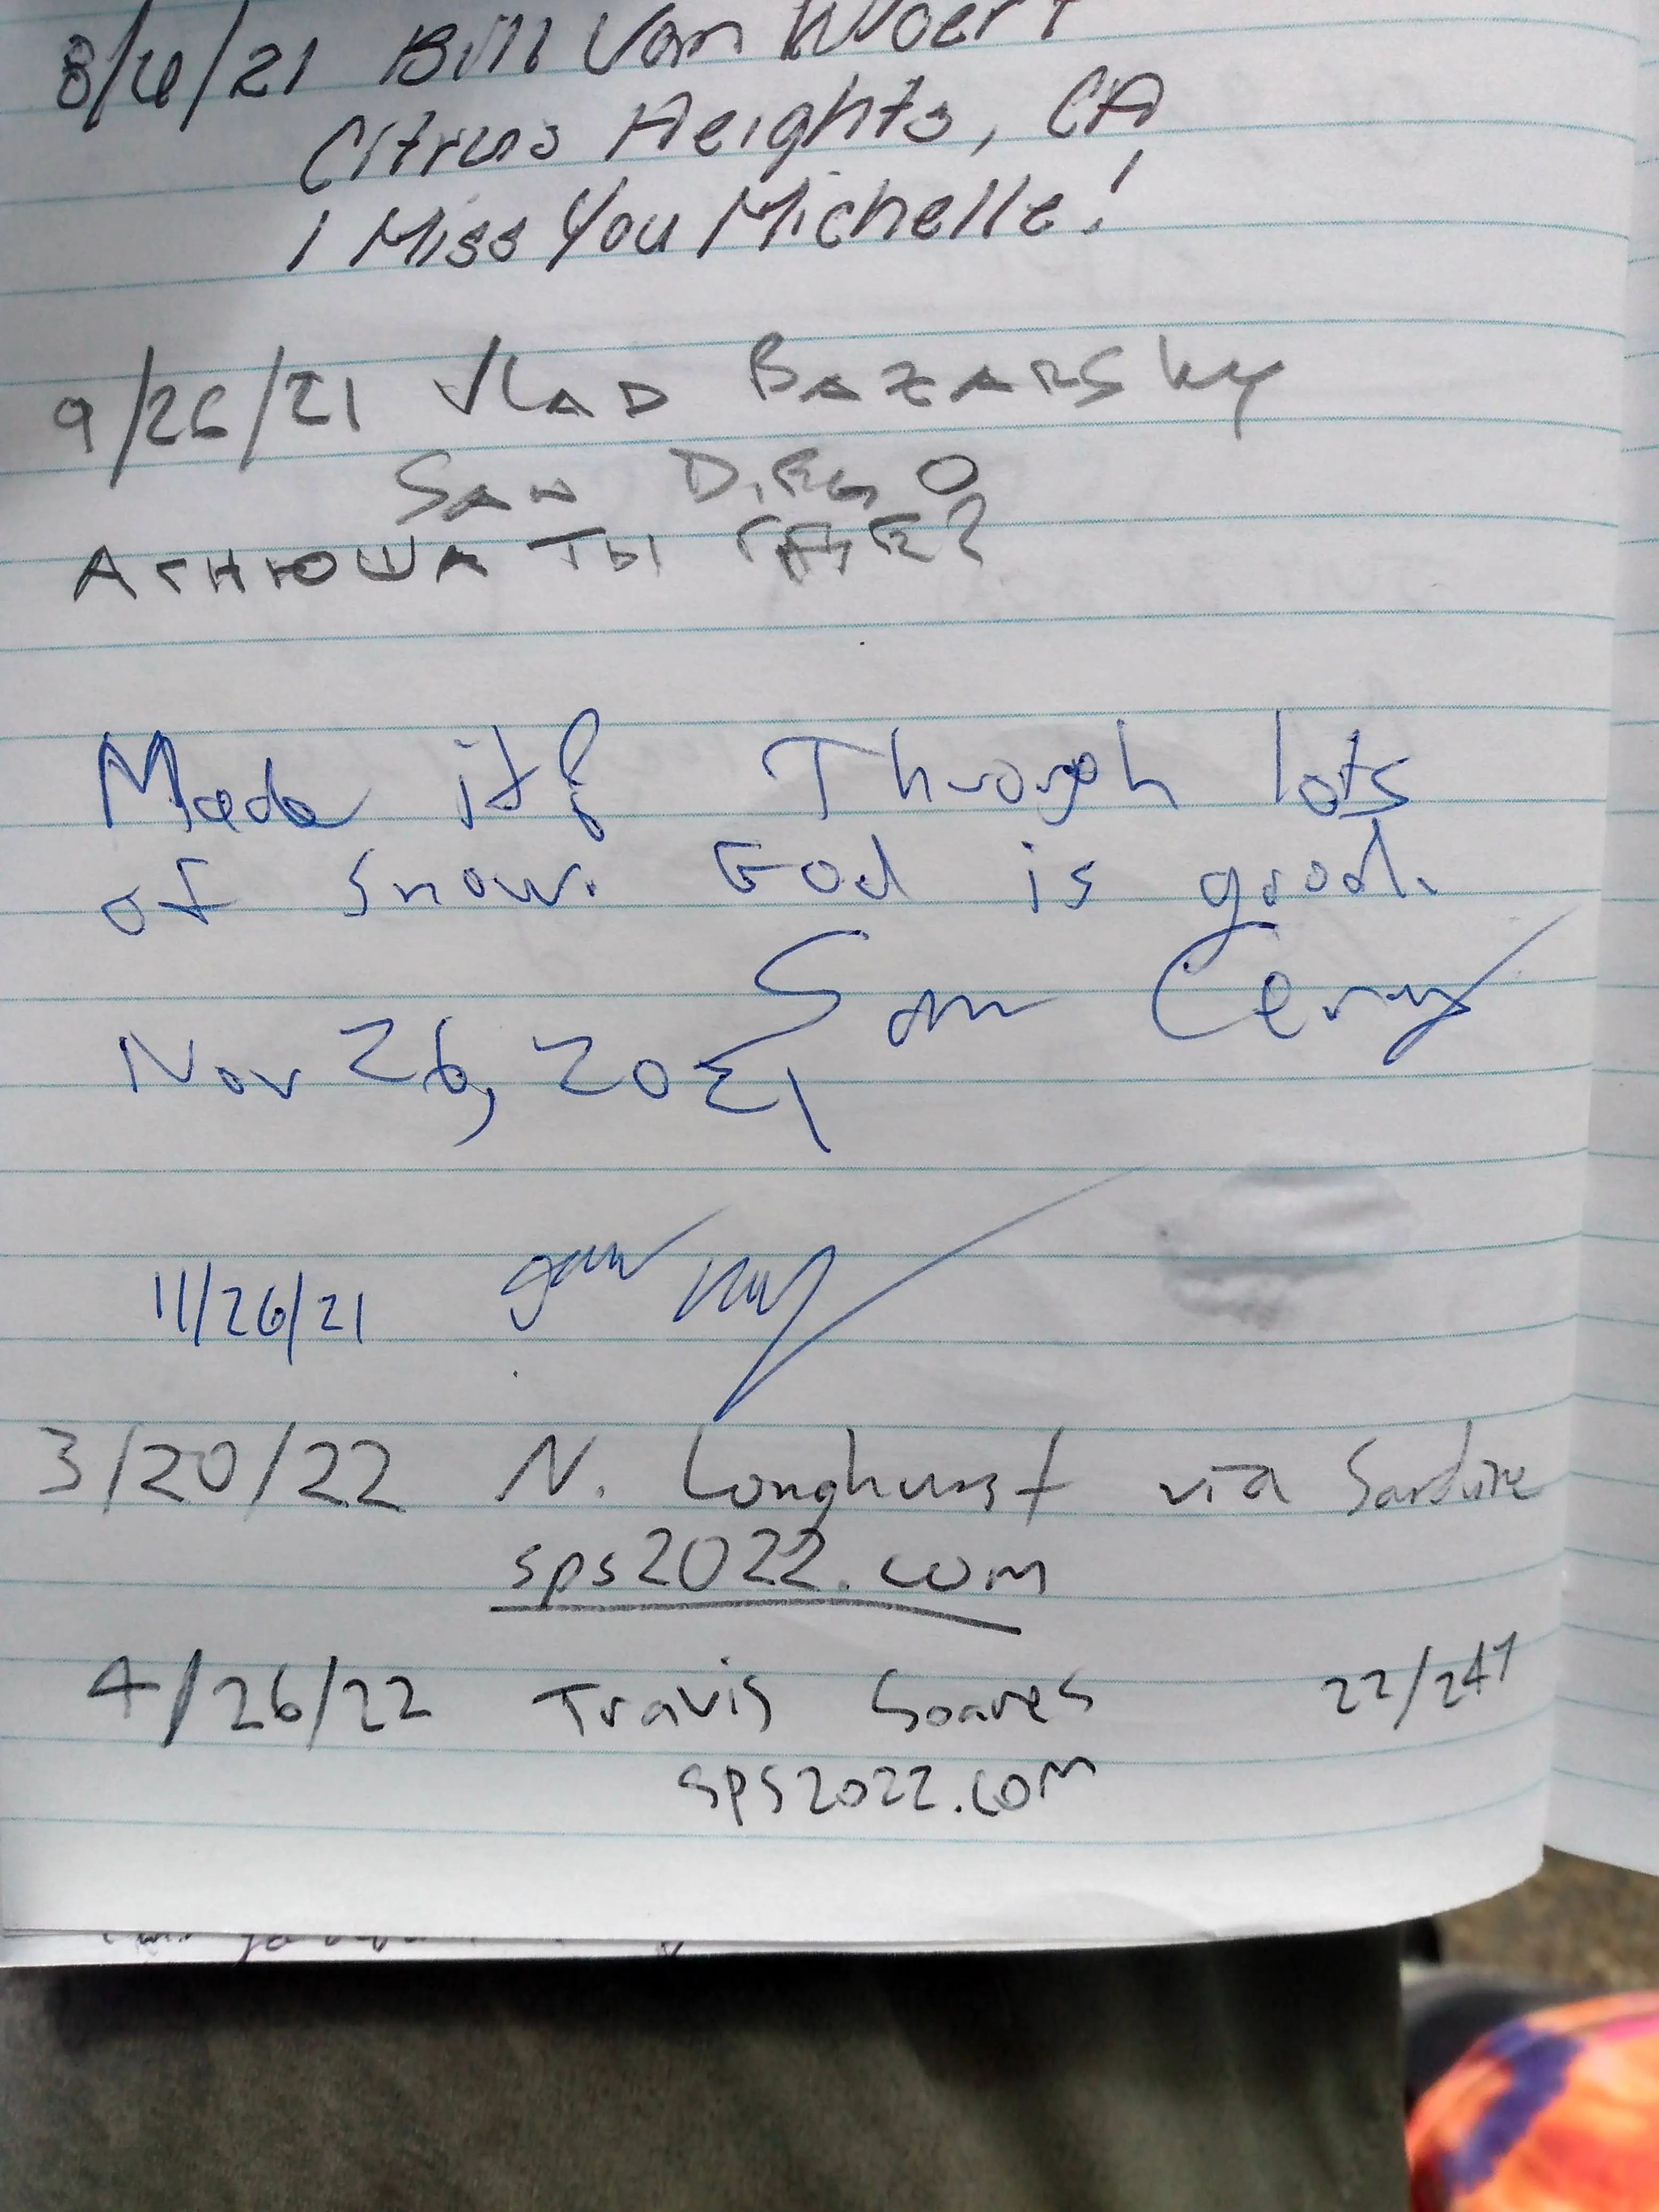 8/6/21 Bill Van Woert
Citrus Heights, CA
I Miss You Michelle!
9/26/21 VLAD BAZARSKY
SAN DIEGO
АГНЮША ТЫ ГДЕ?
Made it! Through lots
of snow. God is good.
Sam Cerny
Nov 26, 2021
11/26/21
3/20/22 N. Longhurst via Sardine
sps2022.com
4/26/22 Travis Soares 22/247
sps2022.com